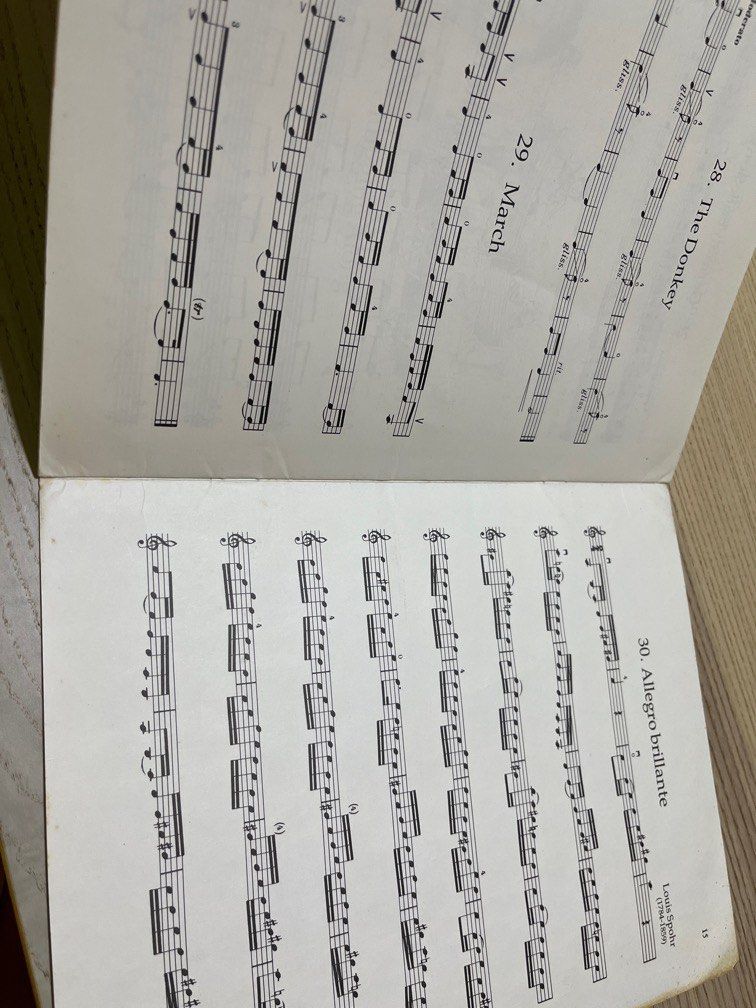 28. The Donkey
Moderato
gliss.
gliss.
gliss.
gliss.
gliss.
rit
29. March
15
30. Allegro brillante
Louis Spohr
(1784-1859)